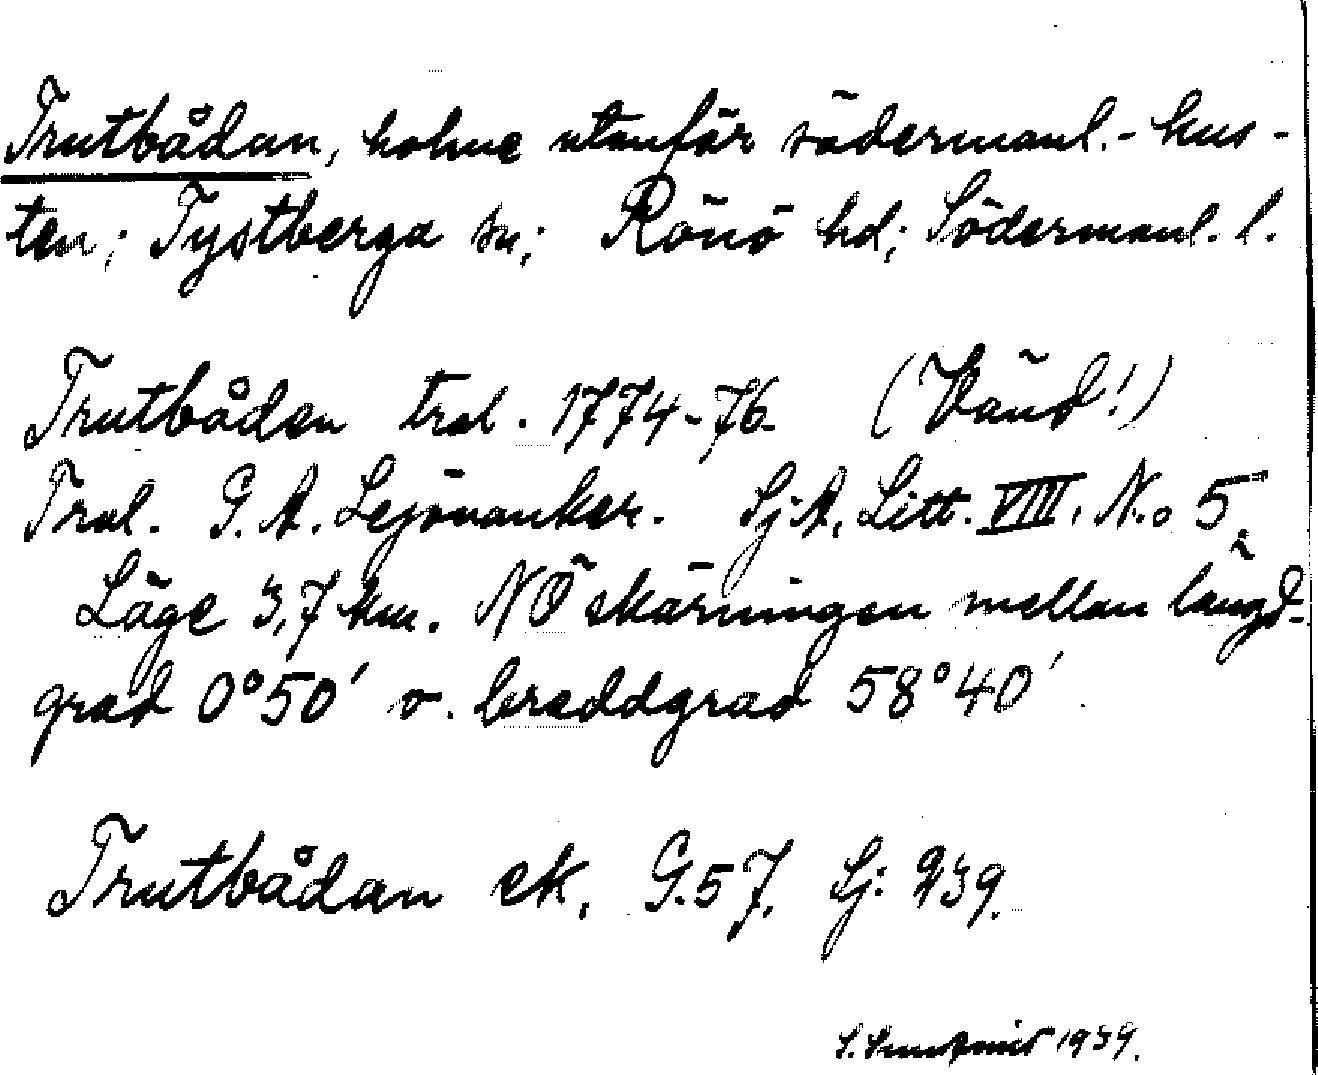 Trutbådan, holme utanför södermanl.-kus-
ten; Tystberga sn; Rönö hd; Södermanl. l.
Trutbådan tral. 1774-76 (Vänd!)
Tral. G. A. Lejonanker. SjA. Litt. VIII. No 5.
Läge 3,7 km. NÖ skärningen mellan längd-
grad 0°50' o. breddgrad 58°40'
Trutbådan ek. G.57. Sj: 939.
S. 1939.